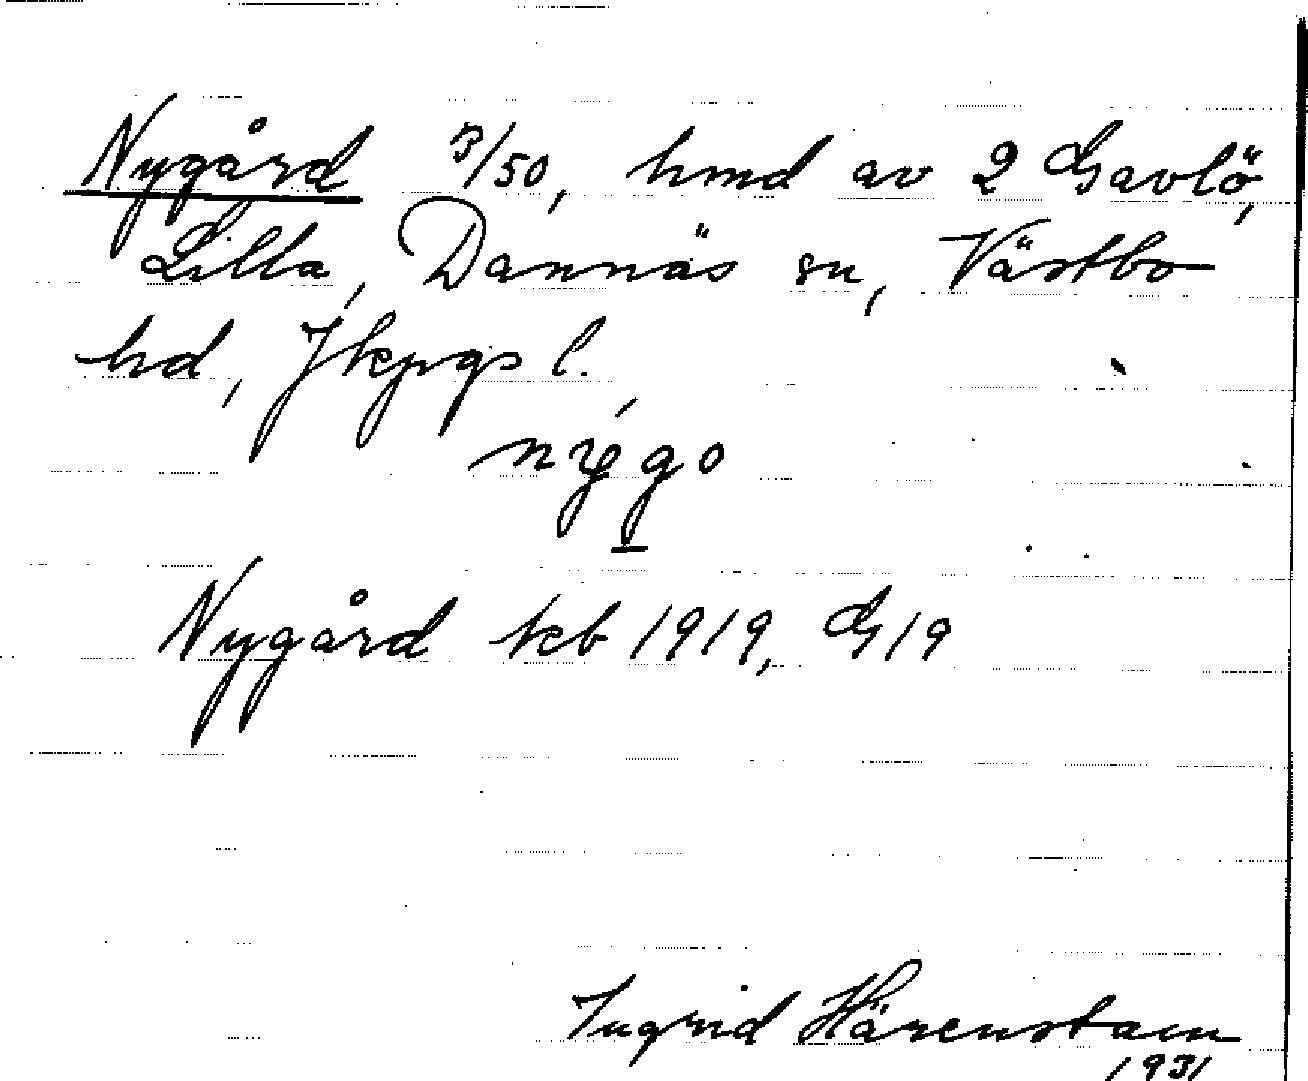 Nygård 3/50, hmd av 2 Gavlö,
Lilla, Dannäs sn, Västbo
hd, Jkpgs l.
nýgo
Nygård kb 1919, G19
Ingrid Härenstam
1931